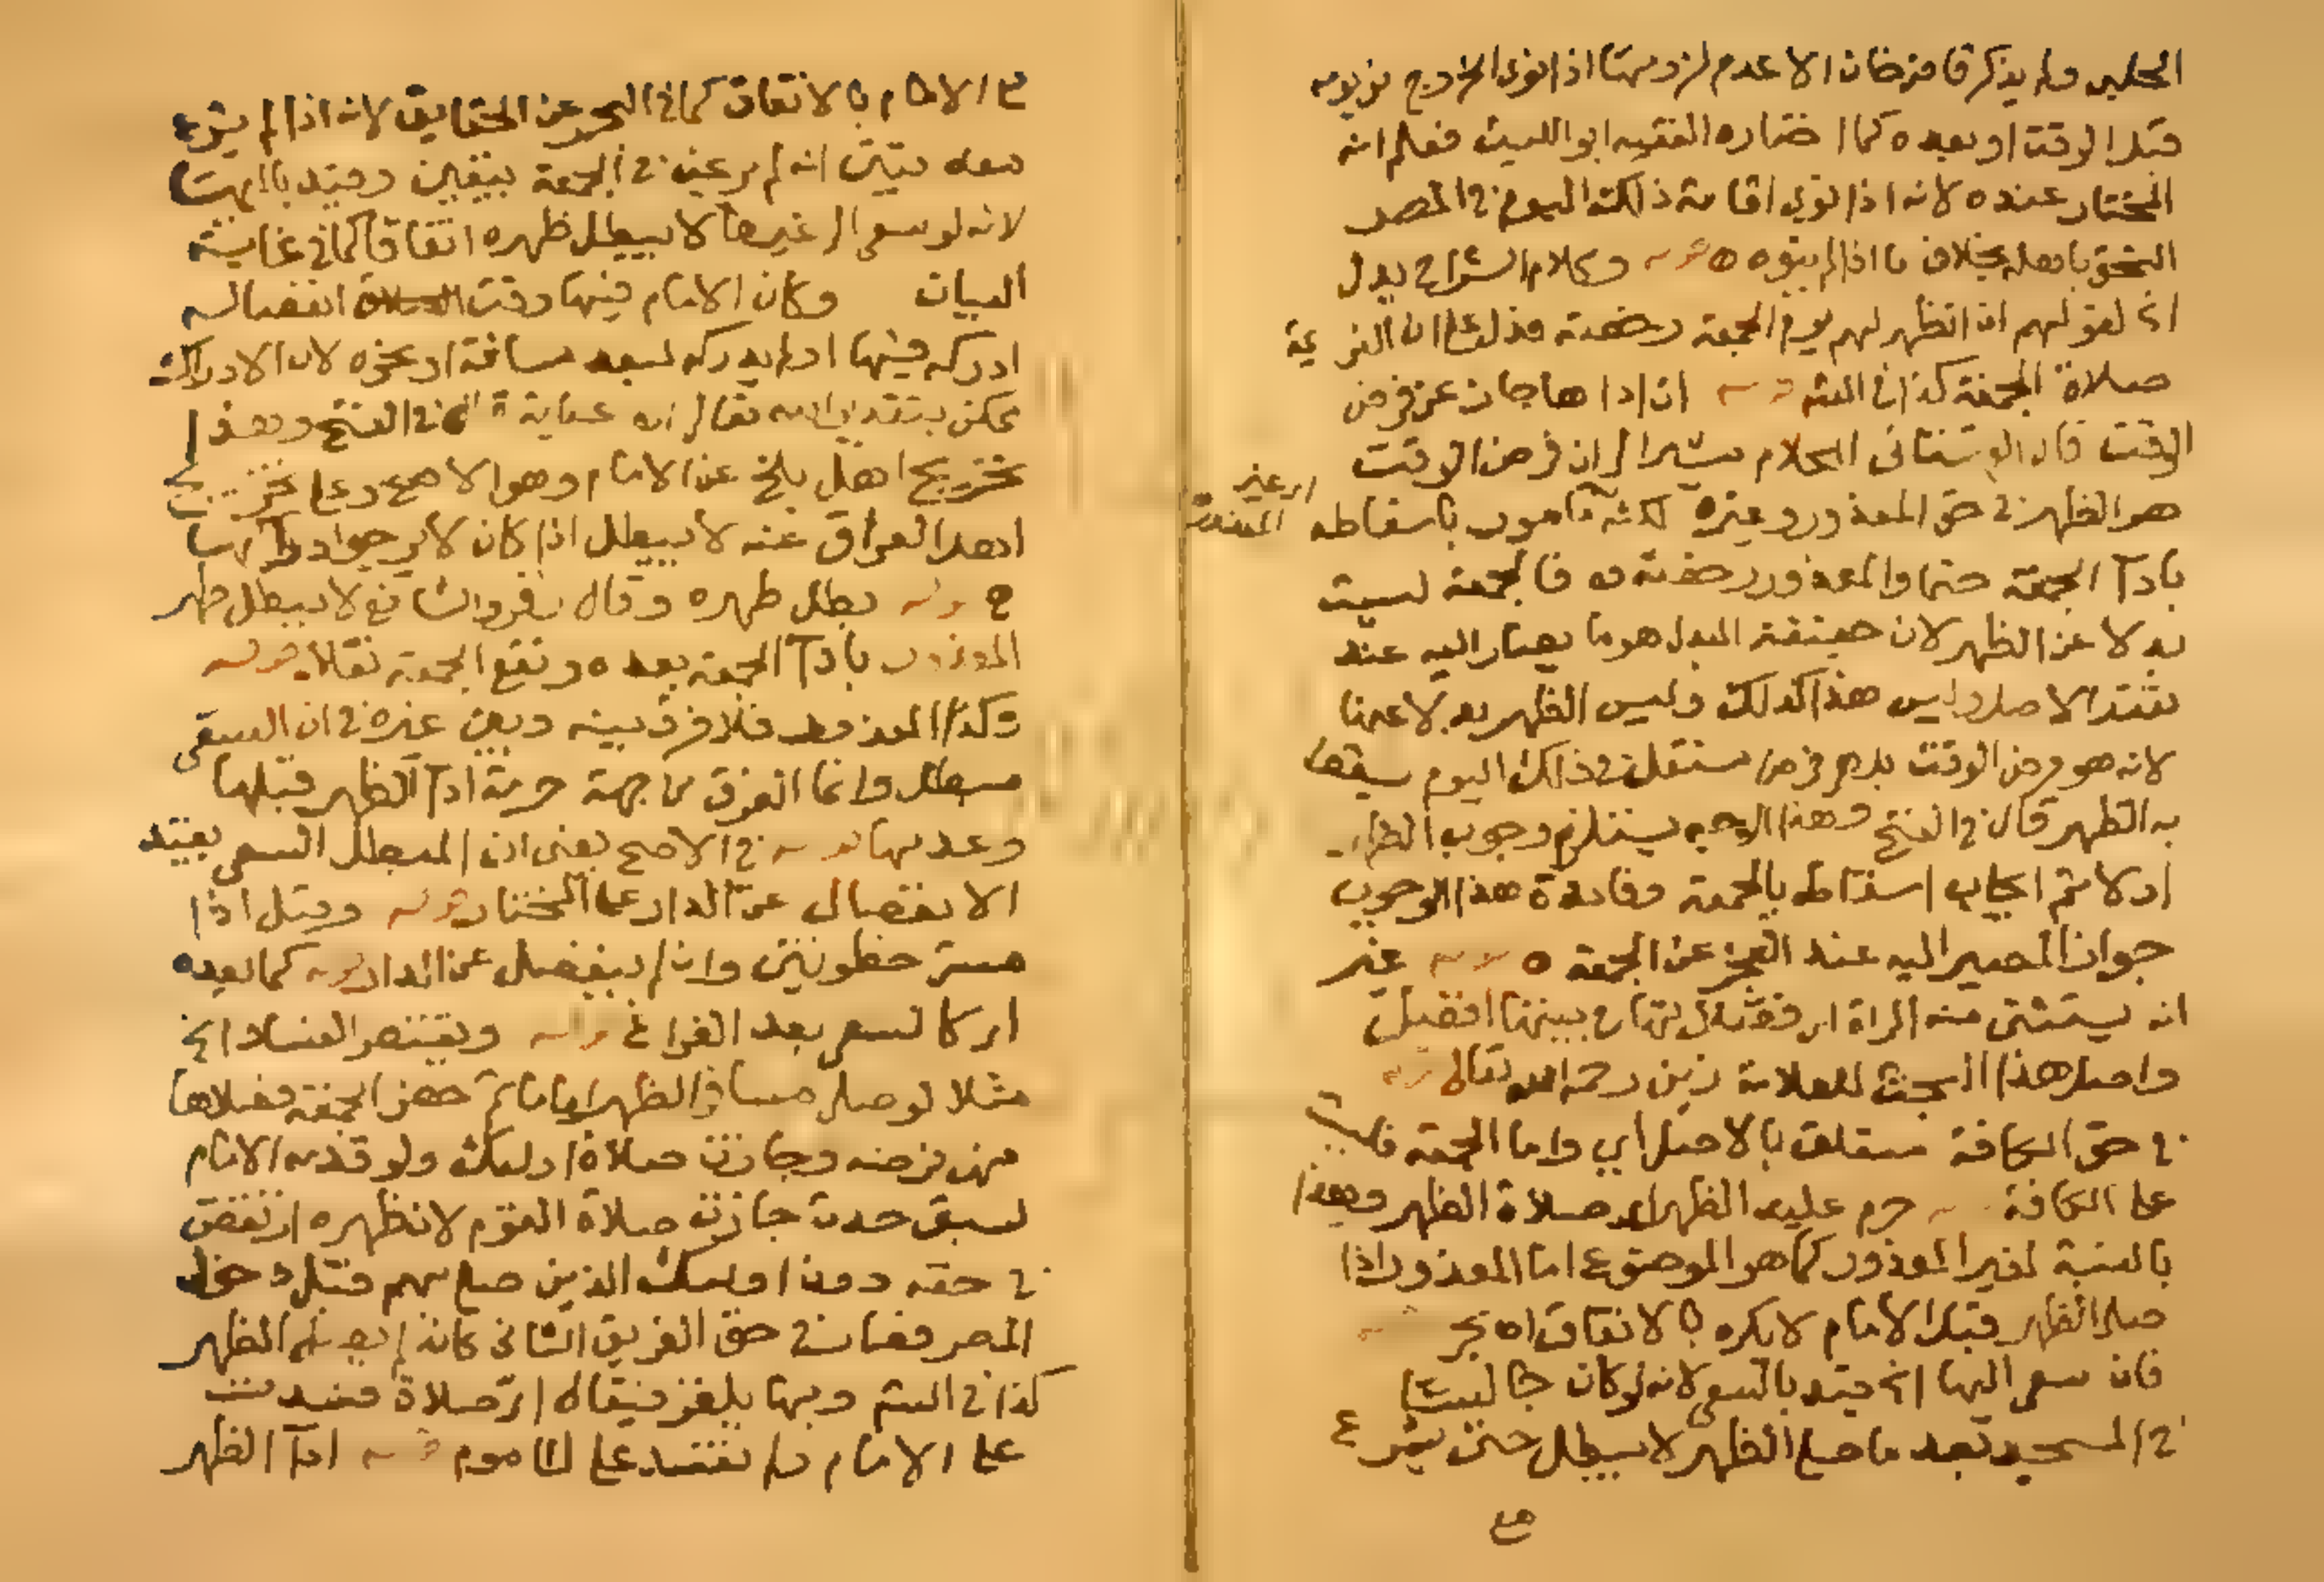 الحلبي ولم يذكر قاضيخان الا عدم لزومها اذا نوى الخروج من يومه
قبل الوقت او بعده كما اختاره الفقيه ابو الليث فعلم انه
المختار عنده لانه اذا نوى اقامة ذلك اليوم في المصر
التحق باهله بخلاف ما اذا لم ينوه قوله وكلام الشراح يدل
الخ لقولهم ان الظهر لهم يوم الجمعة رخصة فدل على ان العزيمة
صلاة الجمعة كذا في قوله ان اداها جاز عن فرض
الوقت قال في الكلام مشيرا الى ان فرض الوقت
هو الظهر في حق المعذور وغيره لكنه مامور باسقاطه اي غير المعذور
بادآ الجمعة حتما والمعذور رخصة فالجمعة ليست
بدلا عن الظهر لان حقيقة البدل هو ما يصار اليه عند
تعذر الاصل وليس هذا كذلك وليس الظهر بدلا عنها
لانه هو فرض الوقت بل هي فرض مستقل في ذلك اليوم يسقط
به الظهر قال في الفتح وهذا الوجه يستلزم وجوب الظهر
اولا ثم ايجاب اسقاطه بالجمعة وفائدة هذا الوجوب
جواز المصير اليه عند العجز عن الجمعة ه قوله غير
انه يستثنى منه المراة اي فصلاتها في بيتها افضل
واصل هذا البحث للعلامة زين رحمه الله تعالى قوله
في حق الكافة متعلق بالاصل اي واما الجمعة فليست
على الكافة قوله حرم عليه الظهر اي صلاة الظهر وهذا
بالنسبة لغير المعذور كما هو الموضوع اما المعذور اذا
صلى الظهر قبل الامام لا يكره بالاتفاق اه بحر
فان سعى اليها الخ قيد بالسعي لانه لو كان جالسا
في المسجد بعد ما صلى الظهر لا يبطل حتى يشرع
مع
مع الامام بالاتفاق كما في البحر عن الحقايق لانه اذا لم يشرع
معه تبين انه لم يرغب في الجمعة بيقين وقيد باليها
لانه لو سعى الى غيرها لا يبطل ظهره اتفاقا كما في غاية
البيان وكان الامام فيها وقت انفصاله
ادركه فيها او لم يدركه لبعد مسافة او نحوه لان الادراك
ممكن بتقدير الله تعالى عناية قال في الفتح وهذا
تخريج اهل بلخ عن الامام وهو الاصح وعلى تخريج
اهل العراق عنه لا يبطل اذا كان لا يرجو ادراكها
ح قوله بطل ظهره وقال زفر والشافعي لا يبطل ظهر
المعذور بادآ الجمعة بعده وتقع الجمعة نفلا قوله
وكذا المعذور فلا فرق بينه وبين غيره في ان السعي
مبطل وانما الفرق من جهة حرمة ادآ الظهر قبلها
وعدمها قوله في الاصح يعني ان المبطل السعي بقيد
الانفصال عن الدار على المختار قوله وقيل اذا
مشى خطوتين وان لم ينفصل عن الدار قوله كما بعده
اي كالسعي بعد الفراغ قوله ويقتصر الفساد الخ
مثلا لو صلى مسافر الظهر اماما ثم حضر الجمعة فصلاها
فهي فرضه وجازت صلاة اوليك ولو قدمه الامام
لسبق حدث جازت صلاة القوم لان ظهره ارتفض
في حقه دون اوليك الذين صلى بهم قبل دخول
المصر فصار في حق الفريق الثاني كانه لم يصل الظهر
كذا في وبها يلغز فيقال اي صلاة فسدت
على الامام ولم تفسد على الماموم قوله ادآ الظهر